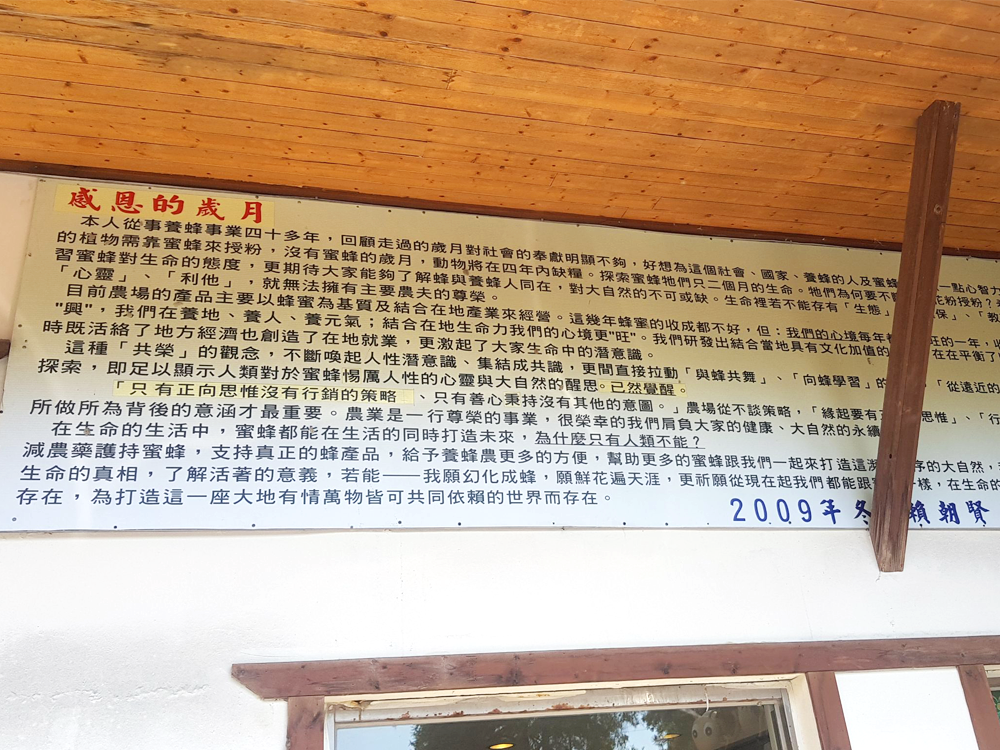 感恩的歲月
本人從事養蜂事業四十多年，回顧走過的歲月對社會的奉獻明顯不夠，好想為這個社會、國家、養蜂的人及蜜蜂 一點心智力
的植物需靠蜜蜂來授粉，沒有蜜蜂的歲月，動物將在四年內缺糧。探索蜜蜂牠們只二個月的生命。牠們為何要不 花粉授粉？
習蜜蜂對生命的態度，更期待大家能夠了解蜂與養蜂人同在，對大自然的不可或缺。生命裡若不能存有「生態 保」、「教
「心靈」、「利他」，就無法擁有主要農夫的尊榮。
目前農場的產品主要以蜂蜜為基質及結合在地產業來經營。這幾年蜂蜜的收成都不好，但：我們的心境每年 旺的一年，收
"興"，我們在養地、養人、養元氣；結合在地生命力我們的心境更"旺"。我們研發出結合當地具有文化加值的 在在平衡了
時既活絡了地方經濟也創造了在地就業，更激起了大家生命中的潛意識。
這種「共榮」的觀念，不斷喚起人性潛意識、集結成共識，更間直接拉動「與蜂共舞」、「向蜂學習」的 「從遠近的
探索，即足以顯示人類對於蜜蜂惕厲人性的心靈與大自然的醒思。已然覺醒。
「只有正向思惟沒有行銷的策略 、只有善心秉持沒有其他的意圖。」農場從不談策略，「緣起要有 思惟」、「行
所做所為背後的意涵才最重要。農業是一行尊榮的事業，很榮幸的我們肩負大家的健康、大自然的永續
在生命的生活中，蜜蜂都能在生活的同時打造未來，為什麼只有人類不能？
減農藥護持蜜蜂，支持真正的蜂產品，給予養蜂農更多的方便，幫助更多的蜜蜂跟我們一起來打造這 序的大自然，
生命的真相，了解活著的意義，若能——我願幻化成蜂，願鮮花遍天涯，更祈願從現在起我們都能跟 一樣，在生命的
存在，為打造這一座大地有情萬物皆可共同依賴的世界而存在。
2009年冬 賴朝賢